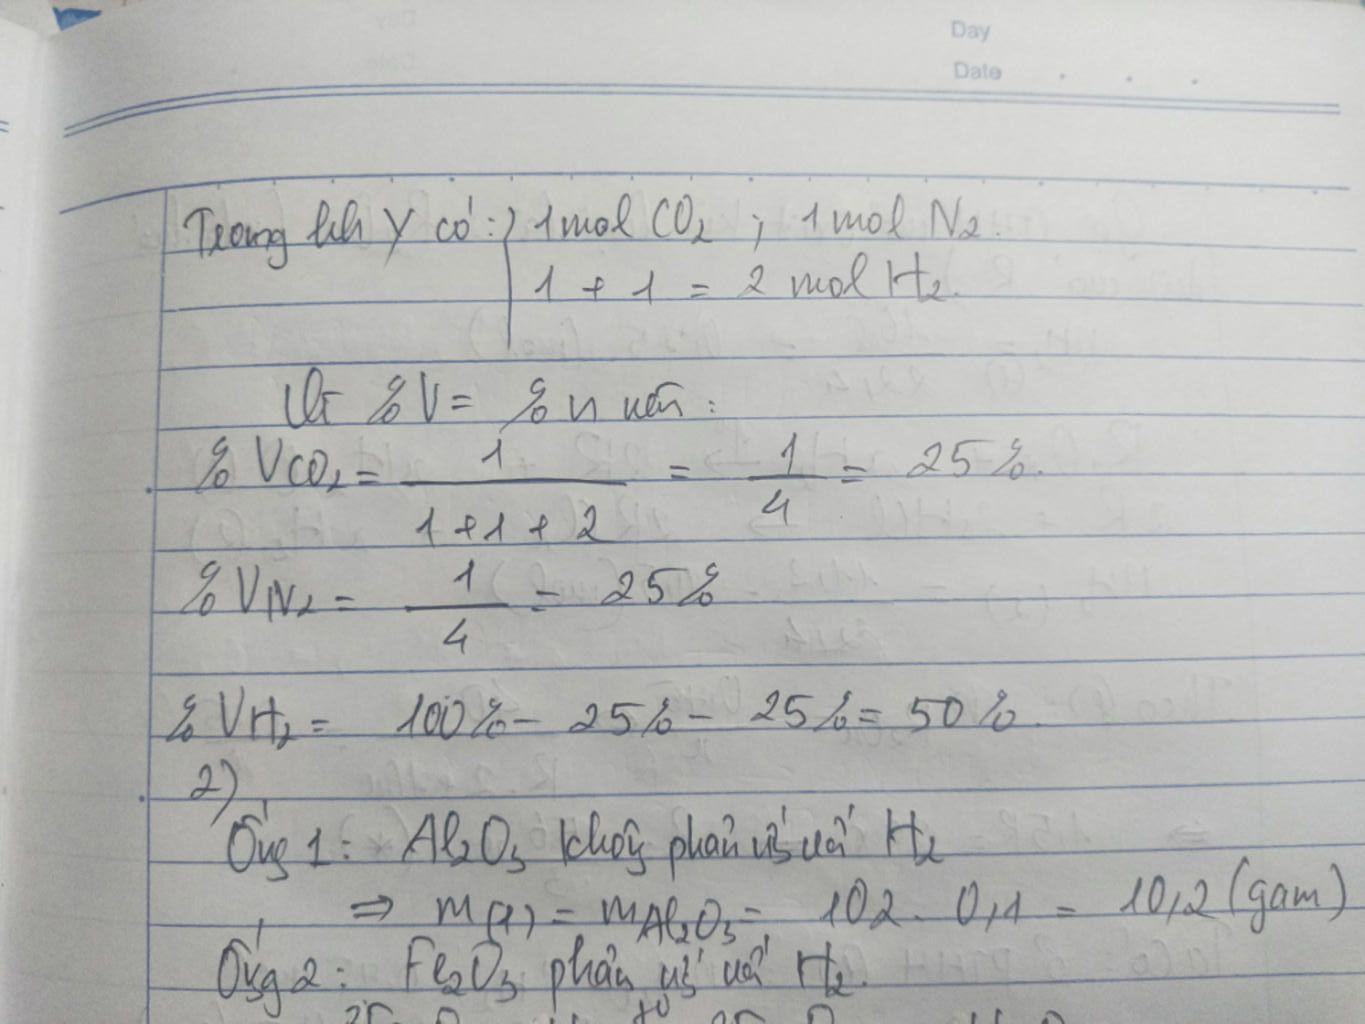 Day
Date
Trong hh Y có: 1 mol CO₂ ; 1 mol N₂.
1 + 1 = 2 mol H₂.
Vì %V = %n nên:
%VCO₂ = 1/(1+1+2) = 1/4 = 25%.
%VN₂ = 1/4 = 25%
%VH₂ = 100% - 25% - 25% = 50%.
2)
Ống 1: Al₂O₃ không phản ứ với H₂
⇒ m(1) = mAl₂O₃ = 102 . 0,1 = 10,2 (gam)
Ống 2: Fe₂O₃ phản ứ với H₂.